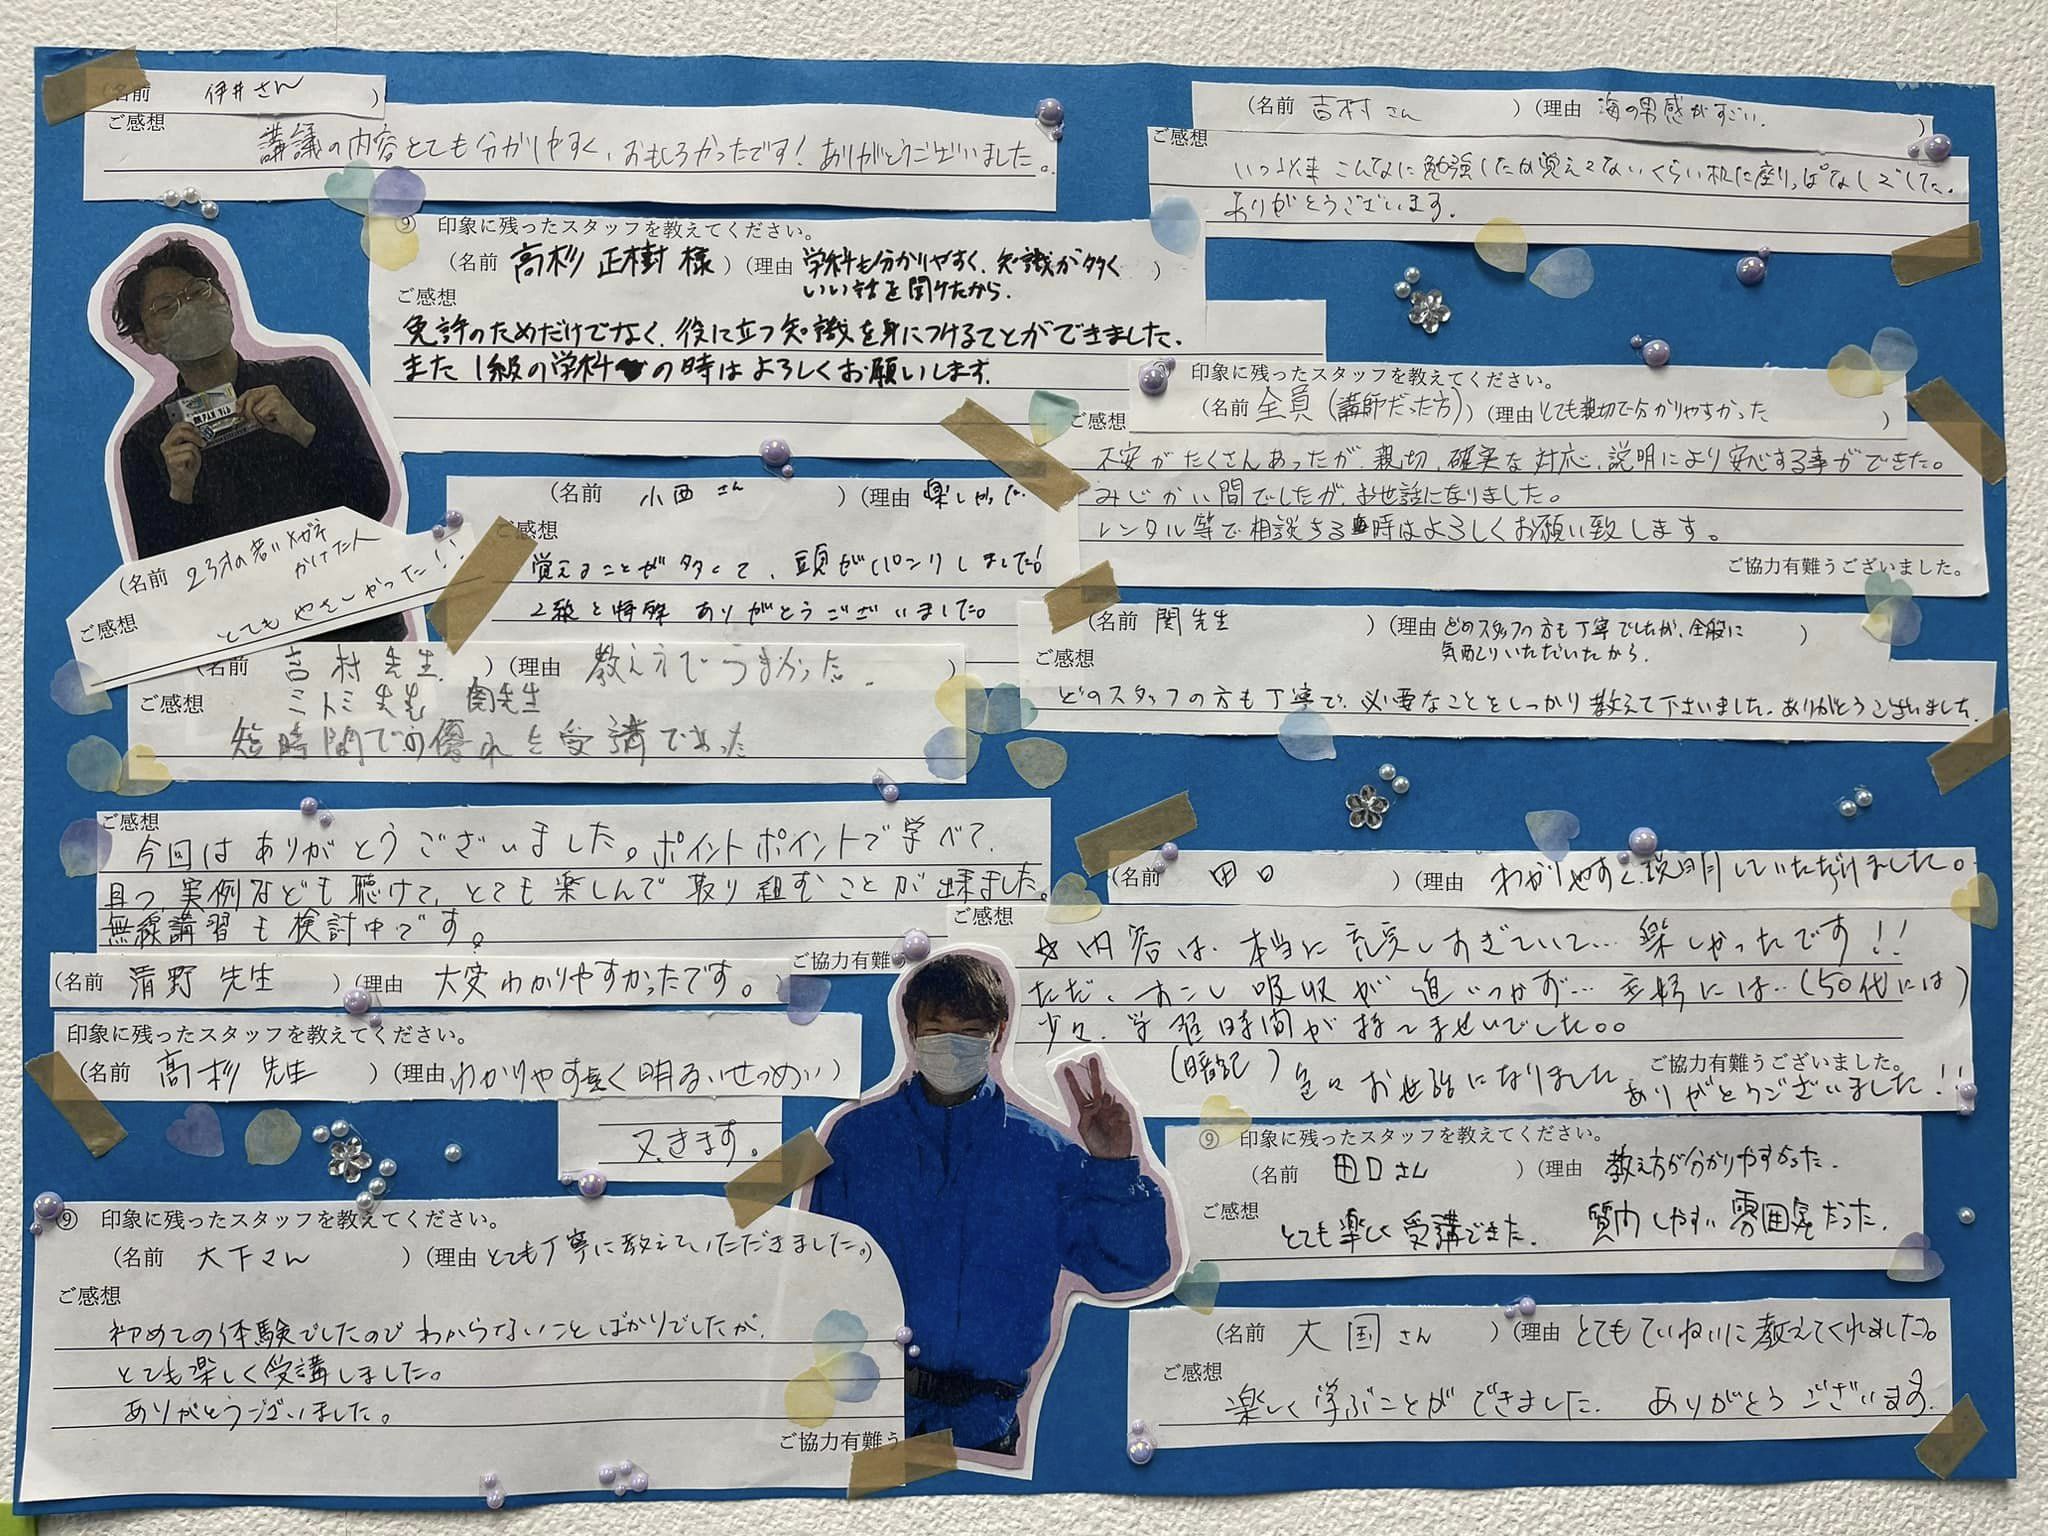 (名前 伊井さん )
ご感想
講議の内容とても分かりやすく、おもしろかったです！ありがとうございました。
⑨ 印象に残ったスタッフを教えてください。
(名前 高杉 正樹 様 ) (理由 学科も分かりやすく、知識が多く )
いい話を聞けたから.
ご感想
免許のためだけでなく、役に立つ知識を身につけることができました。
また1級の学科の時はよろしくお願いします。
(名前 23才の若いメガネ
かけた人
ご感想 とてもやさしかった！！
(名前 小西さん ) (理由 楽しかった.
ご感想
覚えることが多くて、頭がパンクしました！
2級と特殊 ありがとうございました。
(名前 吉村先生. ) (理由 教え方でうまかった. )
ご感想 ミトミ先生 関先生
短時間での優れた受講であった
ご感想
今回はありがとうございました。ポイントポイントで学べて、
且つ、実例なども聴けて、とても楽しんで取り組むことが出来ました。
無線講習も検討中です。
ご協力有難う
(名前 清野先生 ) (理由 大変わかりやすかったです。
印象に残ったスタッフを教えてください。
(名前 高杉先生 ) (理由 わかりやすく明るいせつめい )
又きます。
⑨ 印象に残ったスタッフを教えてください。
(名前 大下さん ) (理由 とても丁寧に教えていただきました。)
ご感想
初めての体験でしたのでわからないことばかりでしたが、
とても楽しく受講しました。
ありがとうございました。
ご協力有難う
(名前 吉村さん ) (理由 海の男感がすごい. )
ご感想
いつ以来 こんなに勉強したか覚えてないくらい机に座りっぱなしでした.
ありがとうございます.
印象に残ったスタッフを教えてください。
(名前 全員(講師だった方) ) (理由 とても親切で分かりやすかった )
ご感想
不安がたくさんあったが、親切、確実な対応、説明により安心する事ができた。
みじかい間でしたが、お世話になりました。
レンタル等で相談する時はよろしくお願い致します。
ご協力有難うございました。
(名前 関先生 ) (理由 どのスタッフの方も丁寧でしたが、全般に )
気配りいただいたから.
ご感想
どのスタッフの方も丁寧で、必要なことをしっかり教えて下さいました。ありがとうございました。
(名前 田口 ) (理由 わかりやすく、説明していただけました。
ご感想
☆内容は、本当に充実しすぎていて… 楽しかったです！！
ただ、すこし吸収が追いつかず… 主婦には‥(50代には)
少々、学習時間が持てませんでした。。
(暗記) 色々お世話になりました
ご協力有難うございました。
ありがとうございました！！
⑨ 印象に残ったスタッフを教えてください。
(名前 田口さん ) (理由 教え方が分かりやすかった.
ご感想
とても楽しく受講できた. 質問しやすい雰囲気だった.
(名前 大国さん ) (理由 とてもていねいに教えてくれました。)
ご感想
楽しく学ぶことができました. ありがとうございます.